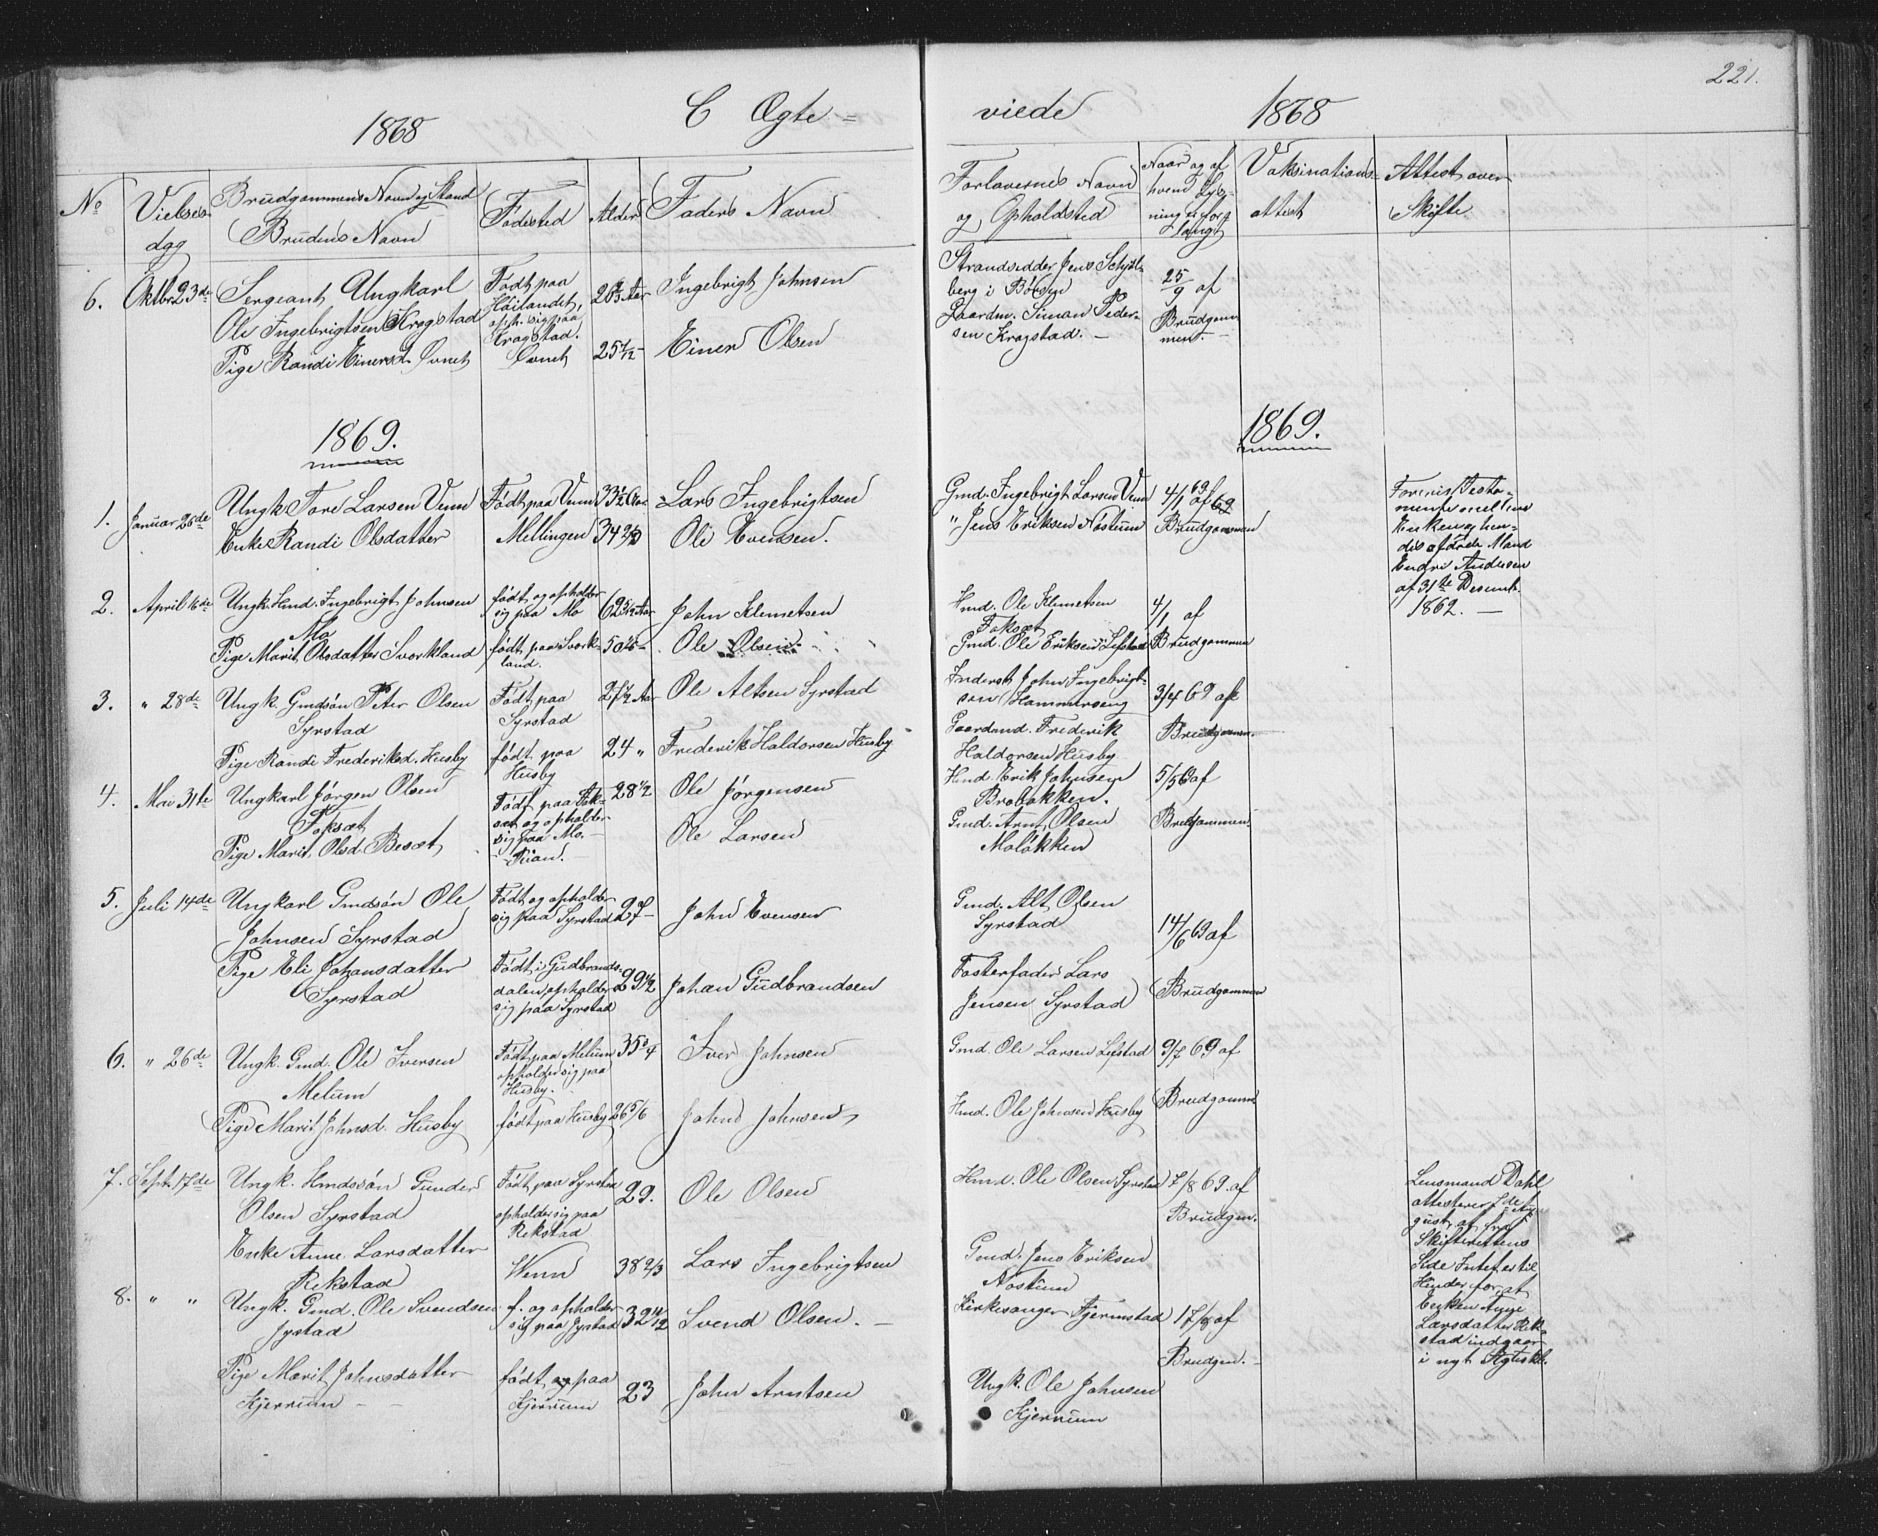 221.
1868 C Ægte= viede 1868
No
Vielses-
dag
Brudgommens Navn og Stand
Brudens Navn
Fødested
Alder
Faders Navn
Forlovernes Navn
og Opholdsted
Naar og af
hvem Lys-
ning er for-
langt
Vaksinations-
attest
Attest over
Skifte
6. Oktbr 23de
Sergeant Ungkarl
Ole Ingebrigtsen Krogstad
Pige Randi Einersd. Øvnet
Født paa
Høilandet,
oph. sig paa
Krogstad.
Øvnet
26 2/3 Aar
25 1/12
Ingebrigt Johnsen
Einer Olsen
Strandsidder Jens Schjøl-
berg i Børsen
Gaardm. Simon Peder-
sen Krogstad. —
25/9 af
Brudgom-
men. —
1869. 1869.
1. Januar 26de
Ungk. Tore Larsen Venn
Enke Randi Olsdatter
Født paa Venn
Mellingen
33 1/2 Aar
34 2/3
Lars Ingebrigtsen
Ole Evensen.
Gmd. Ingebrigt Larsen Venn
" Jens Eriksen Nostum
4/1 69 af
Brudgommen
Forevist Testa-
mente mellem
Enken og hen-
des afdøde Mand
Endre Andersen
af 31te Desemb.
1862. —
2. April 16de
Ungk. Hmd. Ingebrigt Johnsen
Mo
Pige Marit Olsdatter Svorkland
født og opholder
sig paa Mo
født paa Svork-
land.
62 5/12 Aar
50
John Klemetsen
Ole Olsen.
Hmd. Ole Klemetsen
Foksæt
Gmd. Ole Eriksen Lefstad
4/1 af
Brudgommen
3. " 28de
Ungk. Gmdsøn Peter Olsen
Syrstad
Pige Randi Frederiksd. Husby
Født paa
Syrstad
født paa
Husby
21 1/2 Aar
24 "
Ole Altsen Syrstad
Frederik Haldorsen Husby
Inderst John Ingebrigt-
sen Hammerseng
Gaardmd. Frederik
Haldorsen Husby
3/4 69 af
Brudgommen.
4. Mai 31te
Ungkarl Jørgen Olsen
Foksæt
Pige Marit Olsd. Besæt
Født paa Fok-
sæt og opholder
sig paa Mo. —
Tuan. —
28 1/2
Ole Jørgensen
Ole Larsen
Hmd. Erik Johnsen
Brobakken.
Gmd. Arnt Olsen
Moløkken
5/5 69 af
Brudgommen.
5. Juli 14de
Ungkarl Gmdsøn Ole
Johnsen Syrstad
Pige Eli Johansdatter
Syrstad
Født og opholder
sig paa Syrstad
Født i Gudbrands-
dalen, opholder
sig paa Syrstad
27 —
29 1/2
John Evensen
Johan Gudbrandsen
Gmd. Alt Olsen
Syrstad
Fosterfader Lars
Jensen Syrstad
14/6 69 af
Brudgommen
6. " 26de
Ungk. Gmd. Ole Iversen
Melum
Pige Marit Johnsd. Husby
Født paa Melum
opholder sig paa
Husby.
født paa Husby
35 3/4
26 5/6
Iver Johnsen
John Johnsen
Gmd. Ole Larsen Lefstad
Hmd. Ole Johnsen Husby
9/7 69 af
Brudgomme
7. Septr. 17de
Ungk. Hmdssøn Gunder
Olsen Syrstad
Enke Anne Larsdatter
Rekstad
Født paa Syrstad
opholder sig paa
Rekstad
Wenn
29.
38 2/3
Ole Olsen
Lars Ingebrigtsen
Hmd. Ole Olsen Syrstad
Gmd. Jens Eriksen
Nostum
7/8 69. af
Brudgm.
Lensmand Dahl
attesterer 7de Au-
gust at fra
Skifterettens
Side Intet er til
Hinder for at
Enken Anne
Larsdatter Rek-
stad indgaar
i nyt Ægtesk.
8. " "
Ungk. Gmd. Ole Svendsen
Systad
Pige Marit Johnsdatter
Kjerrum —
f. og opholder
sig paa Syrstad
født og paa
Kjerrum
32 1/2
23
Svend Olsen. —
John Arntsen
Kirkesanger Fjermstad
Ungk. Ole Johnsen
Kjerrum
17/8 af
Brudgm. —